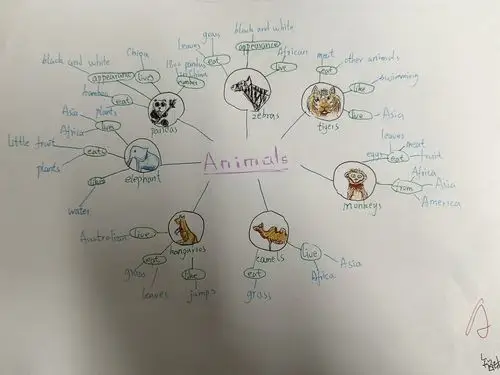 Animals
pandas
black and white
appearance
China
live
bamboo
eat
number
zebras
grass
leaves
eat
black and white
appearance
African
live
tigers
meat
eat
other animals
like
swimming
live
Asia
monkeys
leaves
meat
eggs
eat
fruit
from
Africa
Asia
America
camels
live
Asia
Africa
eat
grass
kangaroos
Australian
live
eat
grass
leaves
like
jumps
elephant
Asia
Africa
live
plants
little fruit
eat
plants
like
water
A